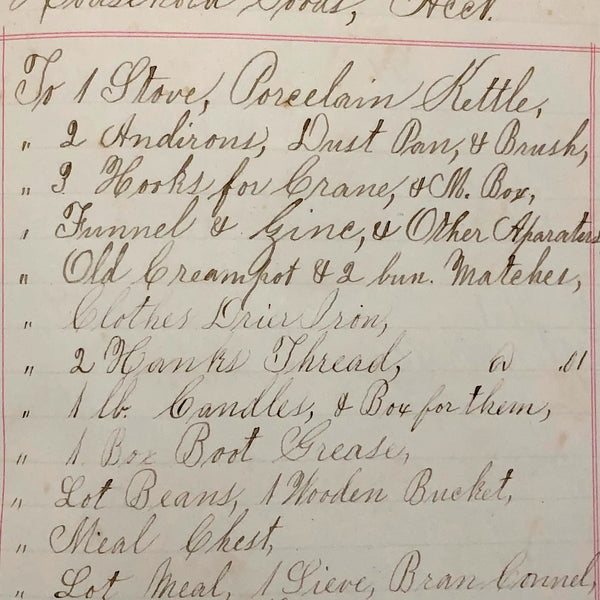 Household Goods, Acct.
To 1 Stove, Porcelain Kettle,
" 2 Andirons, Dust Pan, & Brush,
" 3 Hooks for Crane, & M. Box,
" Funnel & Zinc, & Other Aparatus
" Old Creampot & 2 bun. Matches,
" Clothes Drier Iron,
" 2 Hanks Thread, @ .01
" 1 lb. Candles, & Box for them,
" 1 Box Boot Grease,
" Lot Beans, 1 Wooden Bucket,
" Meal Chest,
" Lot Meal, 1 Sieve, Bran Connel,